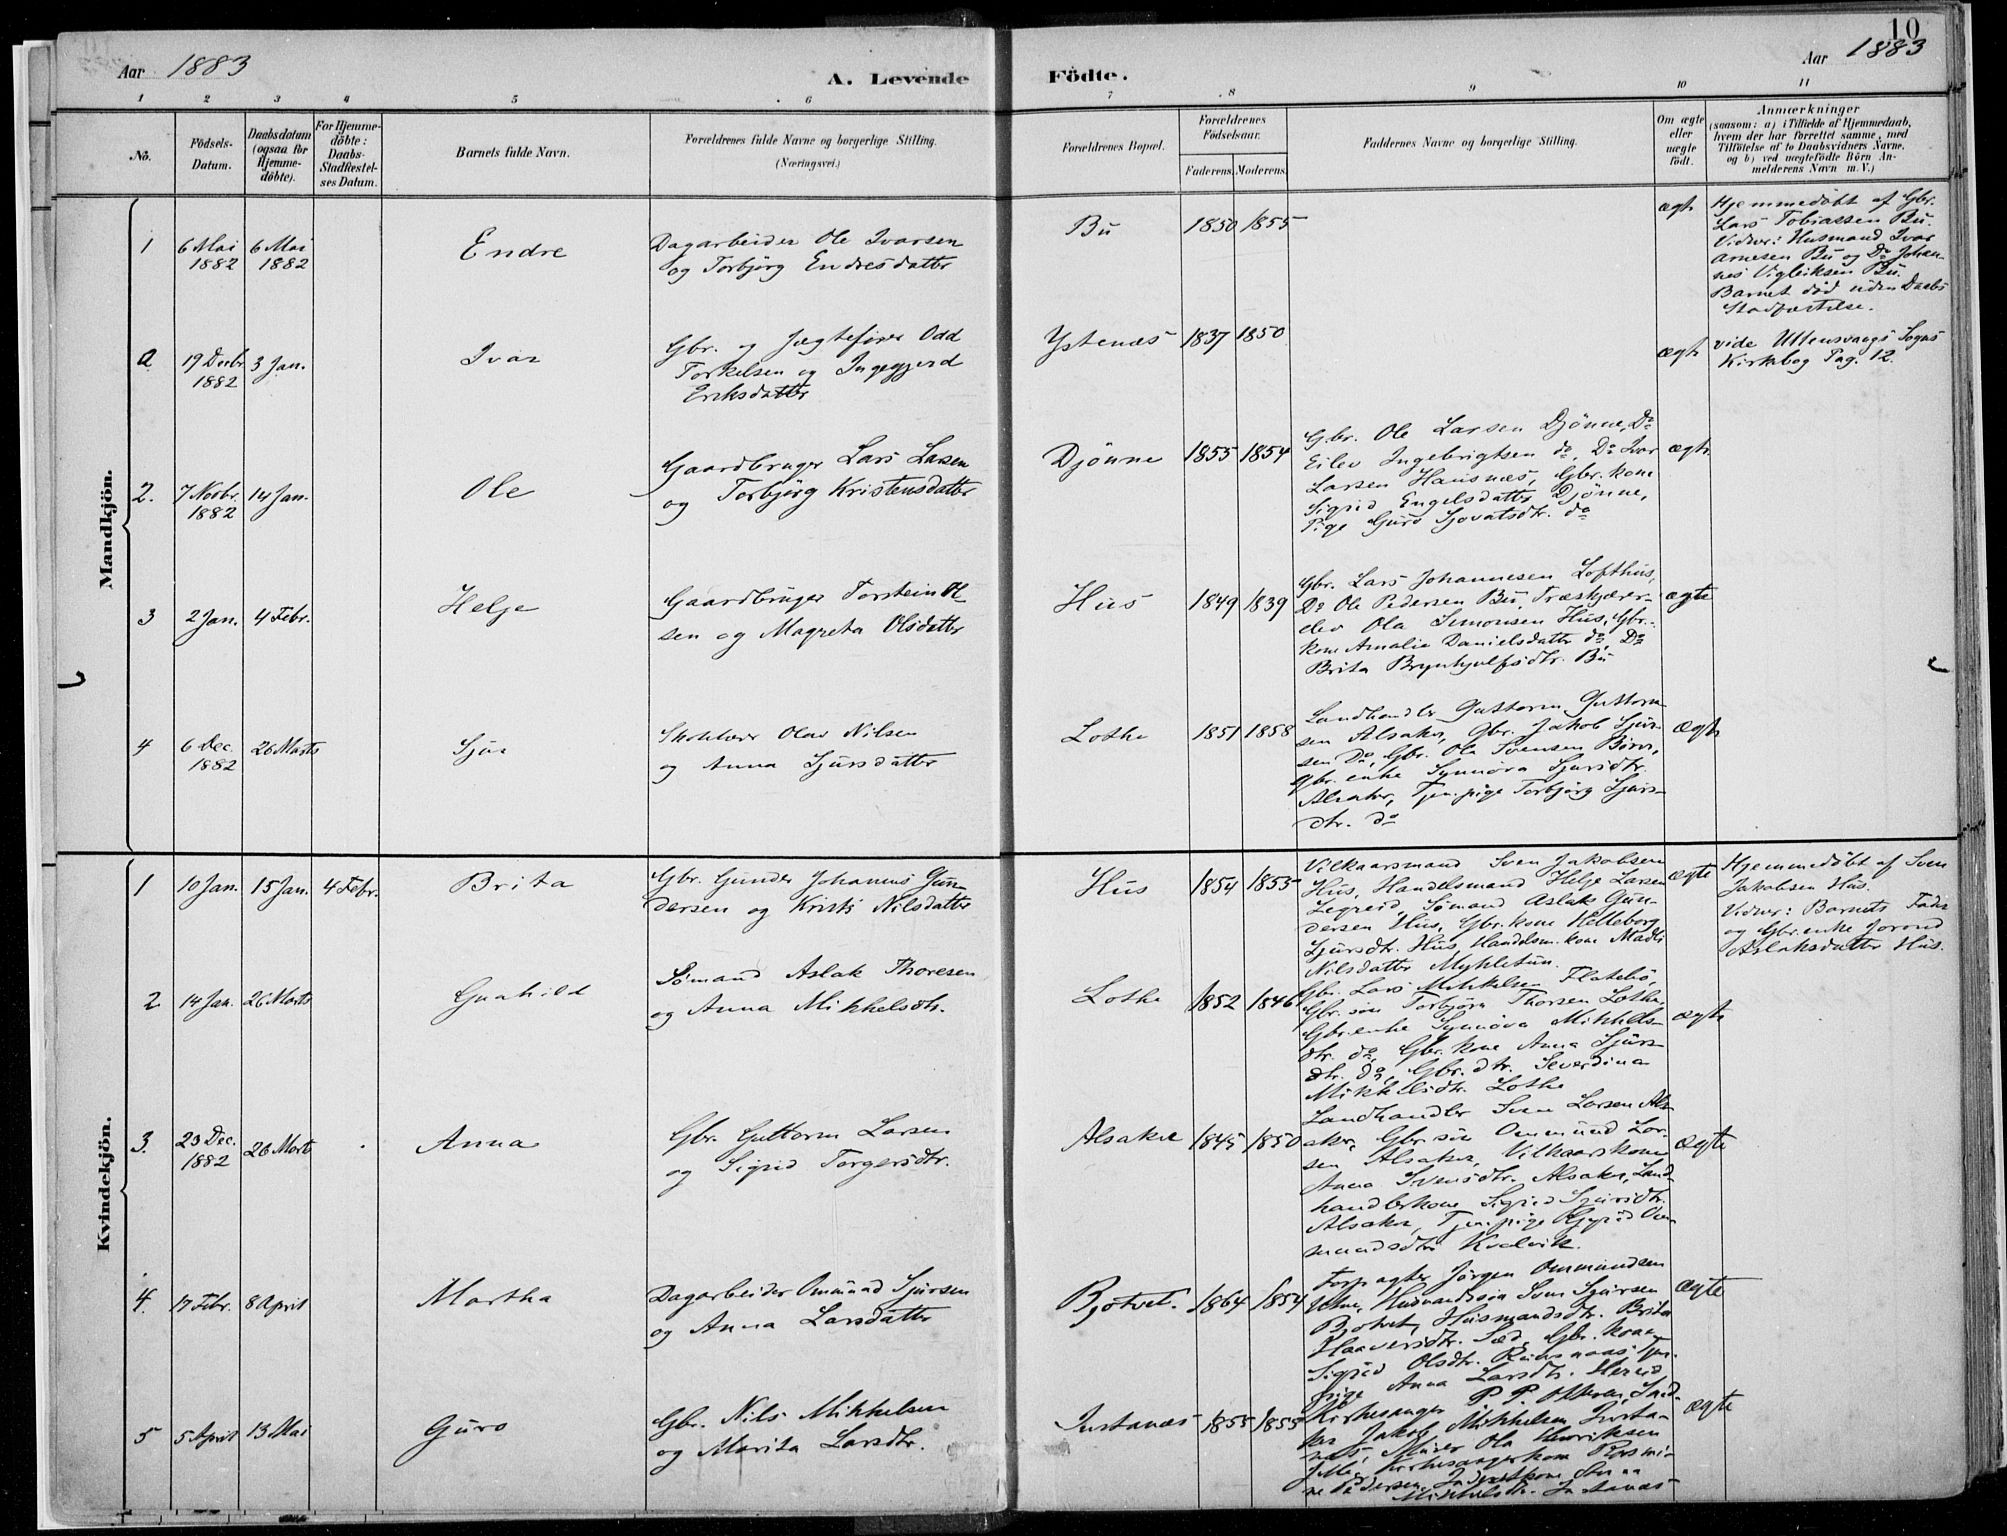 10
Aar 1883
A. Levende Födte.
Aar 1883
1 2 3 4 5 6 7 8 9 10 11
No.
Födsels-
Datum.
Daabsdatum
(ogsaa for
Hjemme-
döbte).
For Hjemme-
döbte:
Daabs-
Stadfæstel-
ses Datum.
Barnets fulde Navn.
Forældrenes fulde Navne og borgerlige Stilling.
(Næringsvei.)
Forældrenes Bopæl.
Forældrenes
Födselsaar.
Faderens. Moderens.
Faddernes Navne og borgerlige Stilling.
Om ægte
eller
uægte
födt.
Anmærkninger
(saasom: a) i Tilfælde af Hjemmedaab,
hvem der har forrettet samme, med
Tilföielse af to Daabsvidners Navne,
og b) ved uægtefödte Börn An-
melderens Navn m. V.)
Mandkjön.
1
6 Mai
1882
6 Mai
1882
Endre
Dagarbeider Ole Ivarsen
og Torbjörg Endresdatter
Bu
1850 1855
ægte
Hjemmedöbt af Gbr.
Lars Tobiassen Bu.
Vidner: Husmand Ivar
Arnesen Bu og Do Johan-
nes Vigleiksen Bu.
Barnet död uden Daabs
Stadfæstelse.
a
19 Decbr
1882
3 Jan.
Ivar
Gbr. og Jægtefører Odd
Torkelsen og Ingegjerd
Eriksdatter
Ystenæs
1837 1850
ægte
vide Ullensvangs Sogns
Kirkebog Pag. 12.
2.
7 Novbr.
1882
14 Jan.
Ole
Gaardbruger Lars Larsen
og Torbjörg Kristensdatter
Djönne
1855 1854
Gbr. Ole Larsen Djönne, Do
Eilev Ingebrigtsen do, Do Ivar
Larsen Hausnæs, Gbr. kone
Sigrid Engelsdatter Djönne,
Pige Guro Sjovatsdtr. do
ægte
3
2 Jan.
4 Febr.
Helje
Gaardbruger Torstein Ol-
sen og Magreta Olsdatter
Hus
1849 1839
Gbr. Lars Johannesen Lofthus,
Do Ole Pedersen Bu, Træskjærer-
elev Ola Simonsen Hus, Gbr.-
kone Amalia Danielsdatter do, Do
Brita Brynhjulfsdtr. Bu
ægte
4
6 Dec.
1882
26 Marts
Sjur
Skolelærer Olav Nilsen
og Anna Sjursdatter
Lothe
1851 1858
Landhandler Guttorm Guttorm-
sen Alsaker, Gbr. Jakob Sjur-
sen Do, Gbr. Ola Svensen
Gbr. enke Synnöva Sjursdtr.
Alsaker, Tjen.pige Torbjörg Sjurs-
dtr. do
ægte
Kvindekjön.
1
10 Jan.
15 Jan.
4 Febr.
Brita
Gbr. Gunder Johannes Gun-
dersen og Kristi Nilsdatter
Hus
1854 1855
Vilkaarsmand Sven Jakobsen
Hus, Handelsmand Helje Larsen
Legreid, Sömand Aslak Gun-
dersen Hus, Gbr. kone Helleborg
Sjursdtr. Hus, Handelsm. kone Madli
Nilsdatter Mykletun.
ægte
Hjemmedöbt af Sven
Jakobsen Hus.
Vidner: Barnets Fader
og Gbr. enke Jorond
Aslaksdatter Hus.
2
14 Jan.
26 Marts
Gunhild
Sömand Aslak Thoresen
og Anna Mikkelsdtr.
Lothe
1852 1846
Gbr. Lars Mikkelsen Flatebö,
Gbr. sön Torbjörn Thorsen Lothe,
Gbr. enke Synnöva Mikkels-
dtr. do, Gbr. kone Anna Sjurs-
dtr. do, Gbr. dtr. Severdina
Mikkelsdtr. Lothe
ægte
3.
23 Dec.
1882
26 Marts
Anna
Gbr. Guttorm Larsen
og Sigrid Torgersdtr.
Alsaker
1845 1850
Landhandler Sven Larsen Al-
saker, Gbr. sön Ommund Lar-
sen Alsaker, Vilkaarskone
Anna Svensdtr. Alsaker, Land-
handlerkone Sigrid Sjursdtr.
Alsaker, Tjen.pige Om-
mundsdtr. Kvalvik.
ægte
4.
17 Febr.
8 April
Martha
Dagarbeider Ommund Sjursen
og Anna Larsdatter
Bjotvet.
1864 1854
Forpagter Jörgen Ommundsen
Utne, Husmandssön Sven Sjursen
Bjotvet, Husmandsdtr. Brita
Haaversdtr. Sæd, Gbr. kone
Sigrid Olsdtr. Tjen.
pige Anna Larsdtr. Hereid
ægte
5
5 April
13 Mai
Guro
Gbr. Nils Mikkelsen
og Marita Larsdtr.
Instanæs
1855 1855
Kirkesanger P. P.
Jakob Mikkelsen Insta-
næs, Ola Henriksen
Kirkesangerkone Rasmi-
ne Pedersen,
Mikkelsdtr. Instanæs
ægte